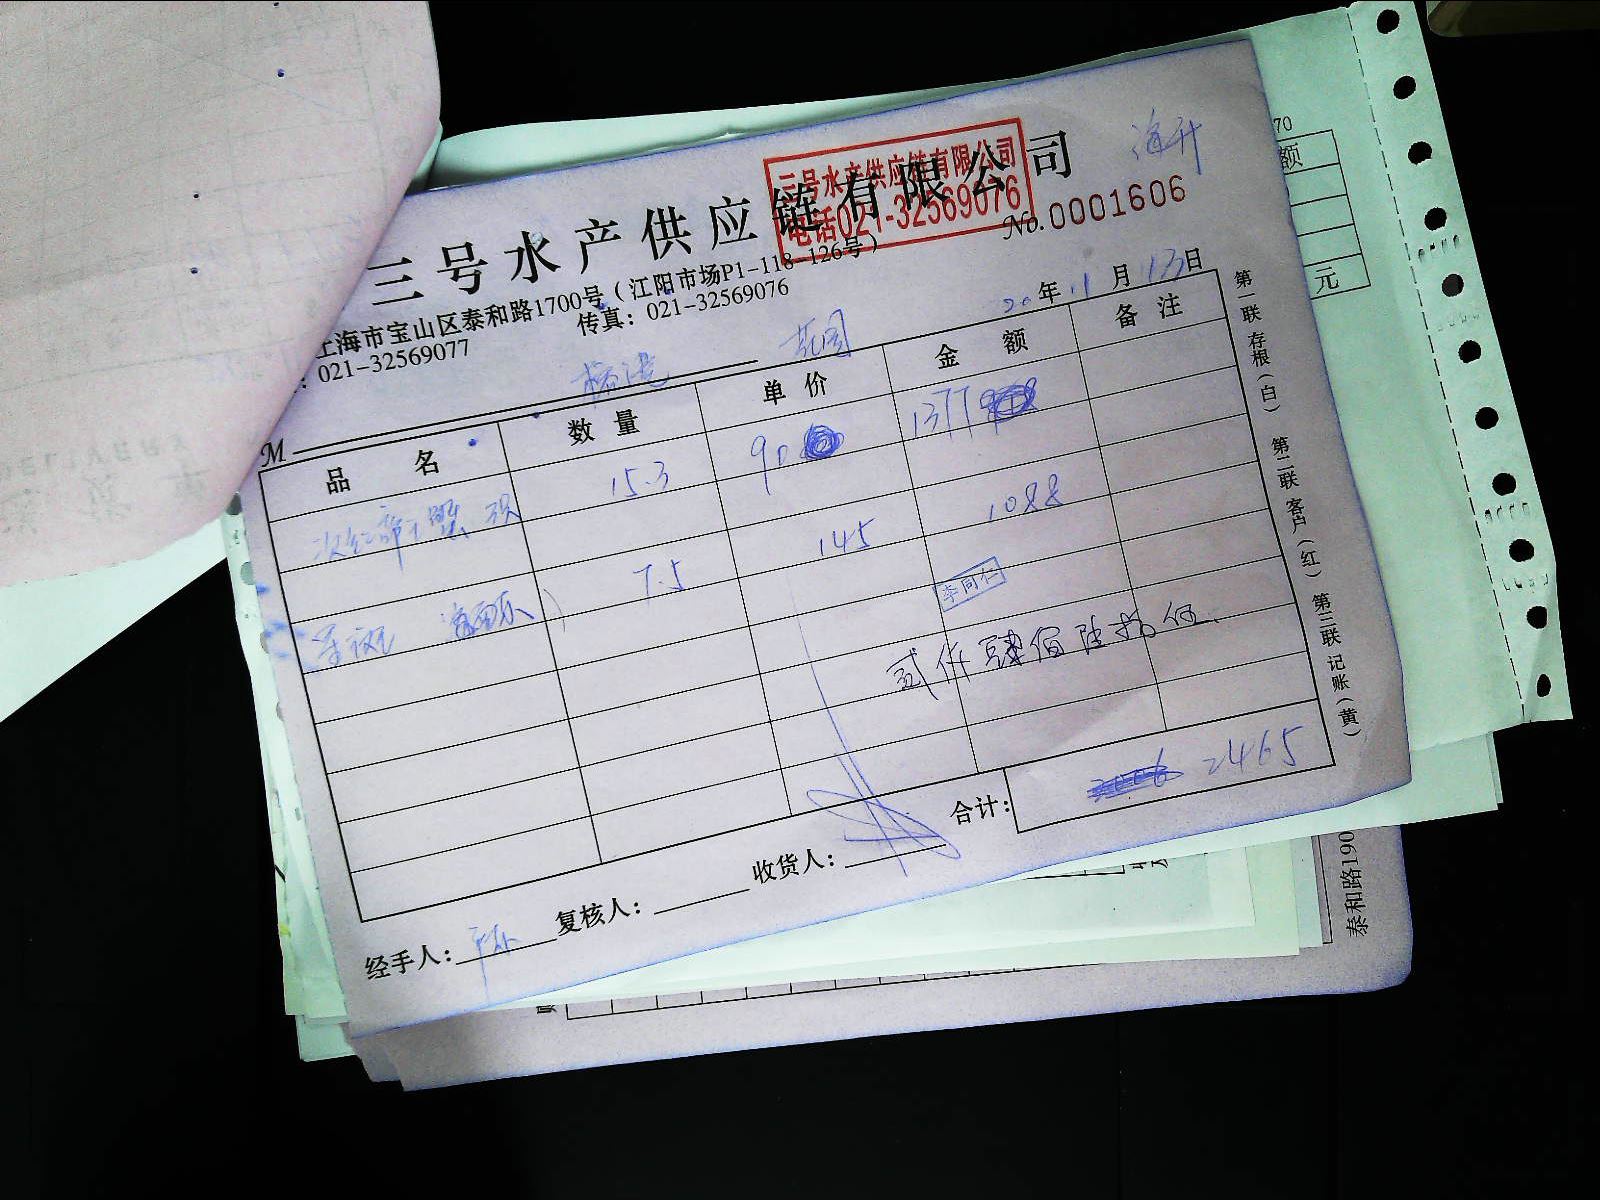 海升
三号水产供应链有限公司
三号水产供应链有限公司
电话021-32569076
No.0001606
上海市宝山区泰和路1700号（江阳市场P1-118-126号）
：021-32569077 传真：021-32569076
20年11月13日
M
品名 数量 单价 金额 备注
15.3 90 1377
7.5 145 1088
李同仁
贰仟肆佰陆拾伍
合计： 2465
经手人： 复核人： 收货人：
第一联存根（白） 第二联客户（红） 第三联记账（黄）
70
额
元
泰和路190